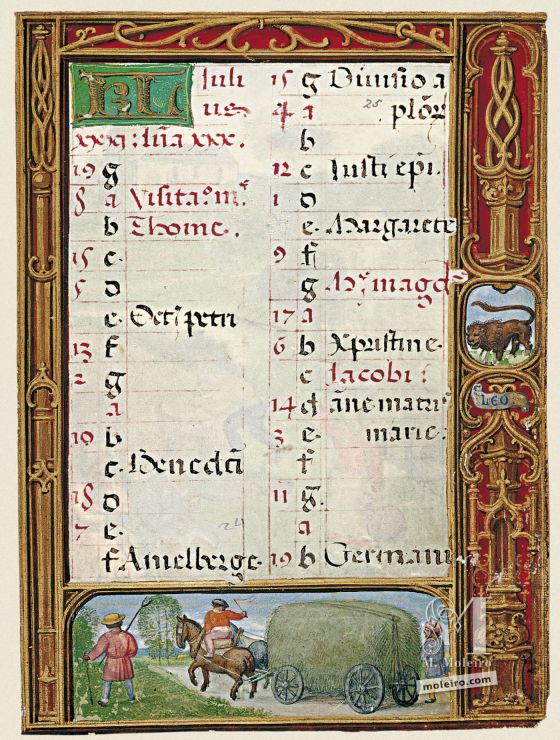 KL Juli
us
xxxi: lūa xxx.
19 g
8 a Visitao. m̄.
b Thome.
15 c.
5 d
e. Oct' petri
13 f
2 g
a
10 b
c. Benedcti
18 d
7 e.
f. Amelberge.
15 g Divisio a
4 a plor̄
b
12 c Justi epi.
1 d
e. Margarete
9 f
g M' magd
17 a
6 b Xpristine.
c Jacobi:
14 d āne matris
3 e. marie:
f
11 g.
a
19 b Germani
25
24
LEO
M. Moleiro
moleiro.com